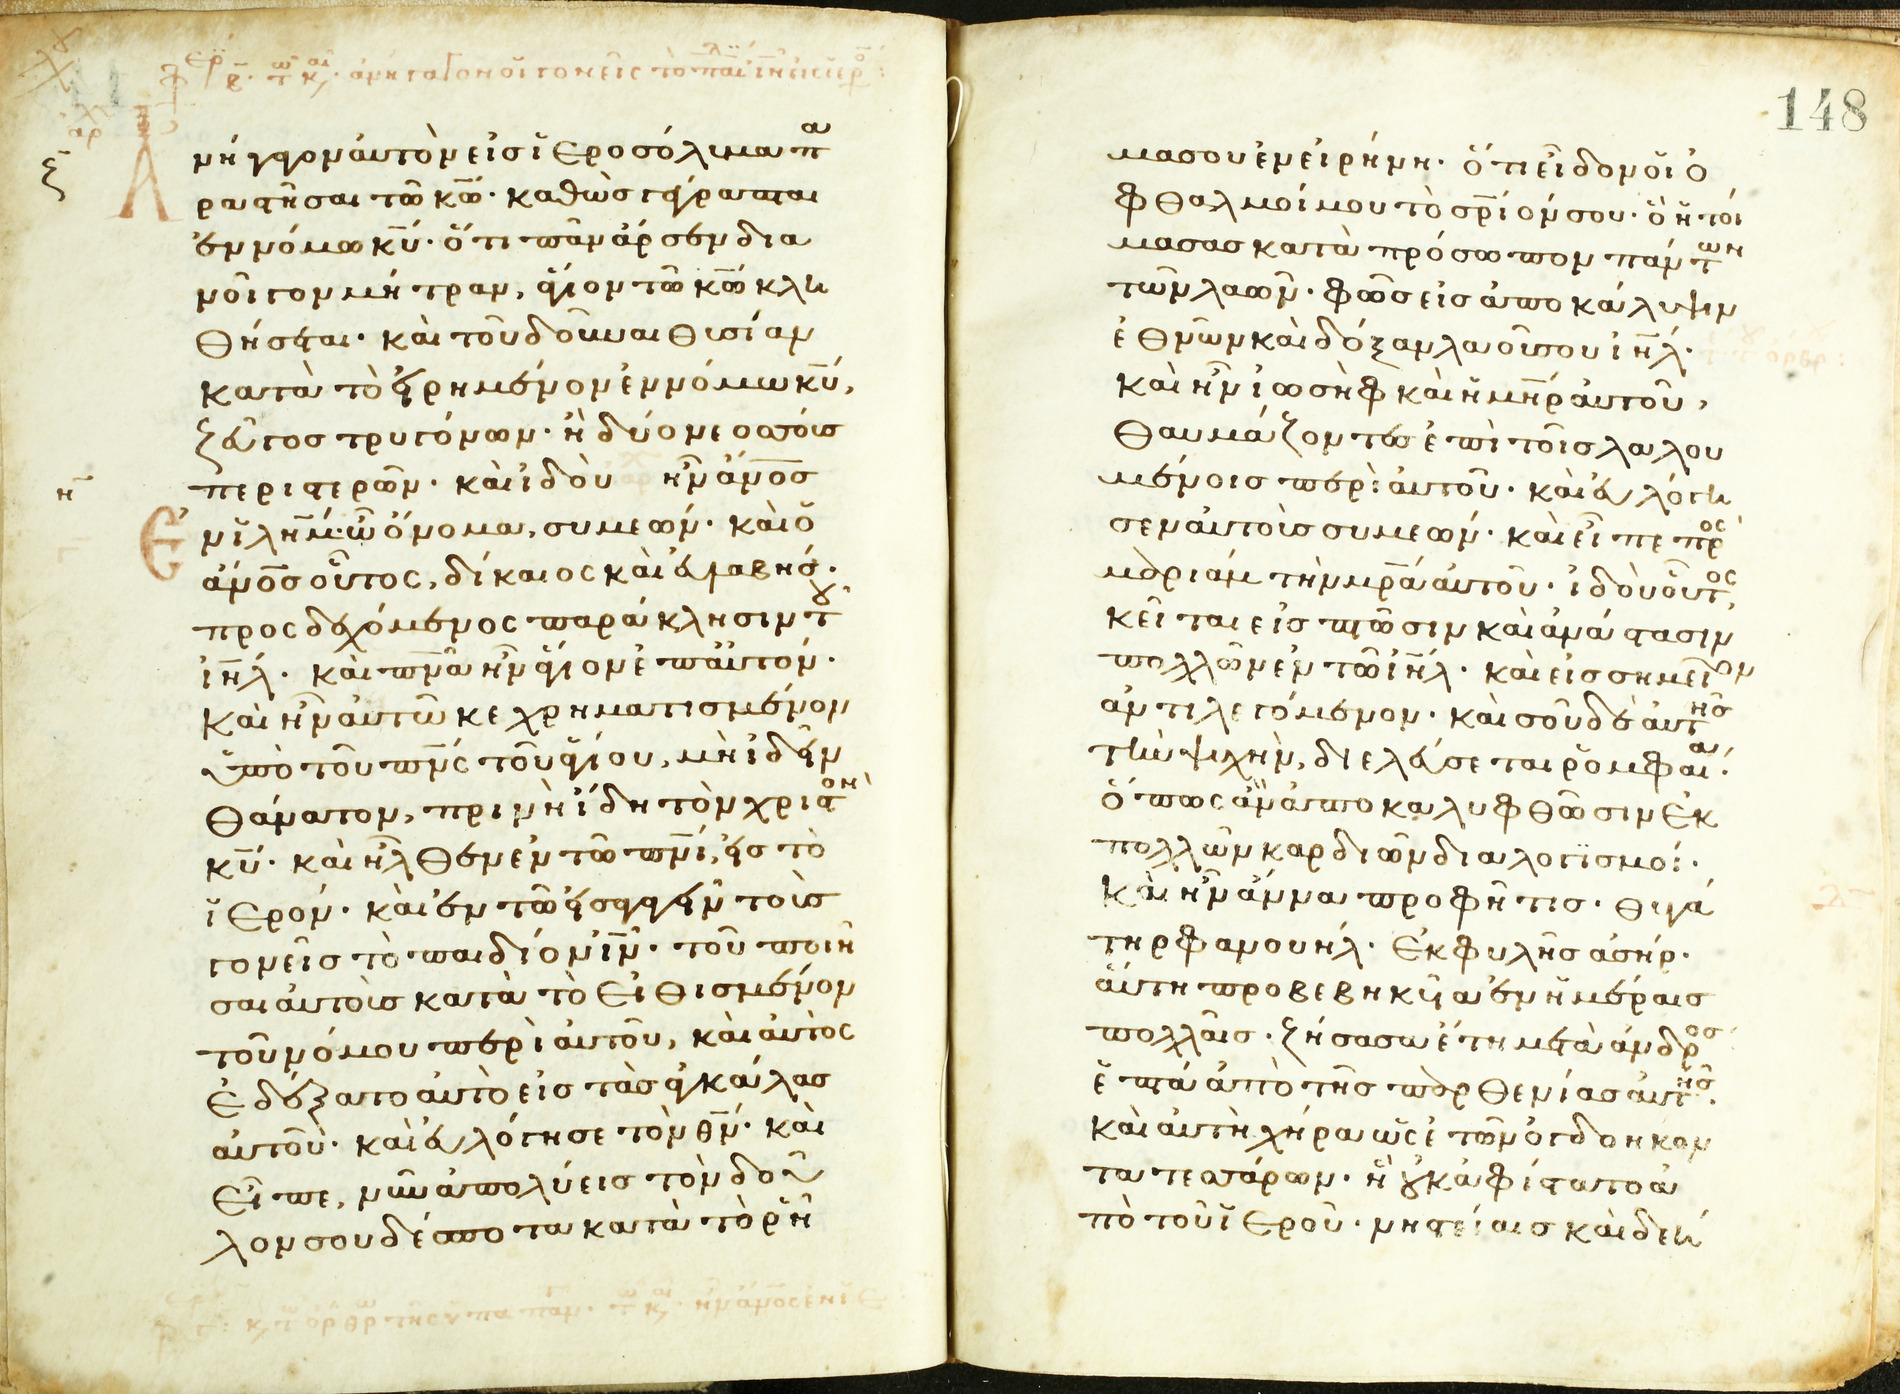 148
μήγαγον αὐτὸν εἰς ἱεροσόλυμα πα
ραστῆσαι τῶ κω̅· καθὼς γέγραπται
ἐν νόμω κυ̅· ὅτι πᾶν ἄρσεν δια
νοῖγον μήτραν, ἅγιον τῶ κω̅ κλη
θήσεται· καὶ τοῦ δοῦναι θυσίαν
κατὰ τὸ εἰρημένον ἐν νόμω κυ̅,
ζεῦγος τρυγόνων· ἢ δύο νεοσσοὺς
περιστερῶν· καὶ ἰδοὺ ἦν ἄνο̅σ
Ἐν ἰλη̅μ· ὧ ὄνομα, συμεών· καὶ ὁ
ἄνο̅σ οὗτος, δίκαιος καὶ εὐλαβής·
προσδεχόμενος παράκλησιν τοῦ
ιη̅λ· καὶ πνα̅ ἦν ἅγιον ἐπ αὐτόν·
καὶ ἦν αὐτῶ κεχρηματισμένον
ὑπὸ τοῦ πνς̅ τοῦ ἁγίου, μὴ ἰδεῖν
θάνατον, πρὶν ἢ ἴδη τὸν χριστὸν
κυ̅· καὶ ἦλθεν ἐν τῶ πνι̅, εἰς τὸ
ἱερόν· καὶ ἐν τῶ εἰσαγαγεῖν τοὺς
γονεῖς τὸ παιδίον ιν̅· τοῦ ποιῆ
σαι αὐτοὺς κατὰ τὸ εἰθισμένον
τοῦ νόμου περὶ αὐτοῦ, καὶ αὐτὸς
ἐδέξατο αὐτὸ εἰς τὰς ἀγκάλας
αὐτοῦ· καὶ εὐλόγησε τὸν θν̅· καὶ
εἶπε, νῦν ἀπολύεις τὸν δοῦ
λον σου δέσποτα κατὰ τὸ ῥῆ
μα σου ἐν εἰρήνη· ὅτι εἶδον οἱ ὀ
φθαλμοί μου τὸ σρ̅ιόν σου· ὃ ἡτοί
μασας κατὰ πρόσωπον πάντων
τῶν λαῶν· φῶς εἰς ἀποκάλυψιν
ἐθνῶν καὶ δόξαν λαοῦ σου ιη̅λ·
καὶ ἦν ἰωσὴφ καὶ ἡ μη̅ρ αὐτοῦ,
θαυμάζοντες ἐπὶ τοῖς λαλου
μένοις περὶ αὐτοῦ· καὶ εὐλόγη
σεν αὐτοὺς συμεών· καὶ εἶπε πρὸς
μαριὰμ τὴν μρ̅α αὐτοῦ· ἰδοὺ οὗτος
κεῖται εἰς πτῶσιν καὶ ἀνάστασιν
πολλῶν ἐν τῶ ιη̅λ· καὶ εἰς σημεῖον
ἀντιλεγόμενον· καὶ σοῦ δὲ αὐτῆς
τὴν ψυχὴν, διελεύσεται ῥομφαία·
ὅπως ἂν ἀποκαλυφθῶσιν ἐκ
πολλῶν καρδιῶν διαλογϊσμοί·
καὶ ἦν ἄννα προφῆτις· θυγά
τηρ φανουήλ· ἐκ φυλῆς ἀσήρ·
αὕτη προβεβηκυῖα ἐν ἡμέραις
πολλαῖς· ζήσασα ἔτη μετὰ ἀνδρὸς
ἑπτὰ ἀπὸ τῆς παρθενίας αὐτῆς·
καὶ αὐτὴ χήρα ὡς ἐτῶν ὀγδοήκον
τα τεσσάρων· ἣ οὐκ ἀφίστατο ἀ
πὸ τοῦ ἱεροῦ· νηστείαις καὶ δεή